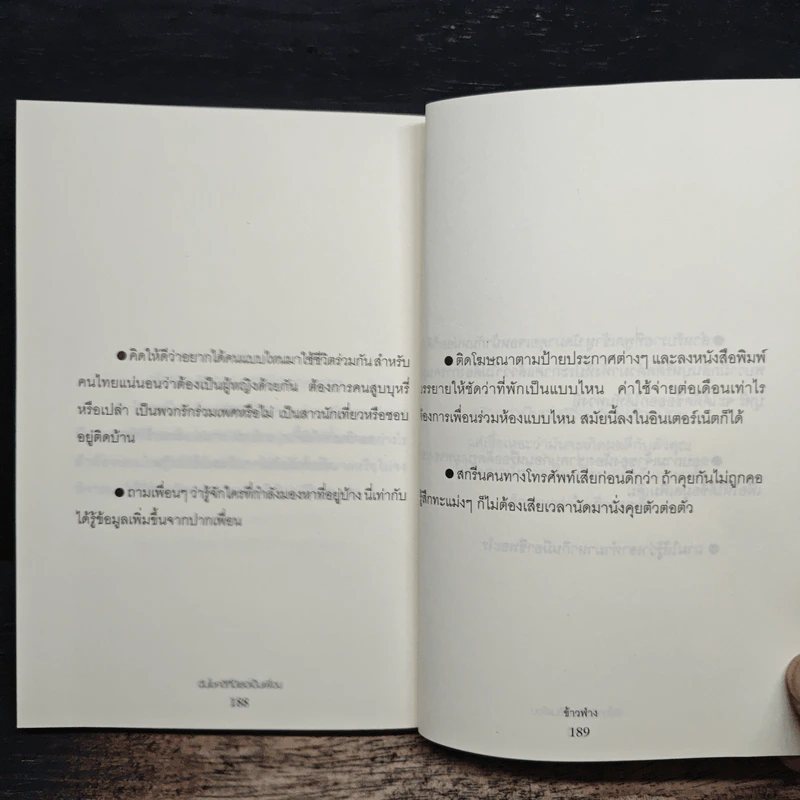 ● คิดให้ดีว่าอยากได้คนแบบไหนมาใช้ชีวิตร่วมกัน สำหรับ
คนไทยแน่นอนว่าต้องเป็นผู้หญิงด้วยกัน ต้องการคนสูบบุหรี่
หรือเปล่า เป็นพวกรักร่วมเพศหรือไม่ เป็นสาวนักเที่ยวหรือชอบ
อยู่ติดบ้าน
● ถามเพื่อนๆ ว่ารู้จักใครที่กำลังมองหาที่อยู่บ้าง นี่เท่ากับ
ได้รู้ข้อมูลเพิ่มขึ้นจากปากเพื่อน
188
● ติดโฆษณาตามป้ายประกาศต่างๆ และลงหนังสือพิมพ์
รรยายให้ชัดว่าที่พักเป็นแบบไหน ค่าใช้จ่ายต่อเดือนเท่าไร
ต้องการเพื่อนร่วมห้องแบบไหน สมัยนี้ลงในอินเตอร์เน็ตก็ได้
● สกรีนคนทางโทรศัพท์เสียก่อนดีกว่า ถ้าคุยกันไม่ถูกคอ
รู้สึกทะแม่งๆ ก็ไม่ต้องเสียเวลานัดมานั่งคุยตัวต่อตัว
ข้าวฟ่าง
189